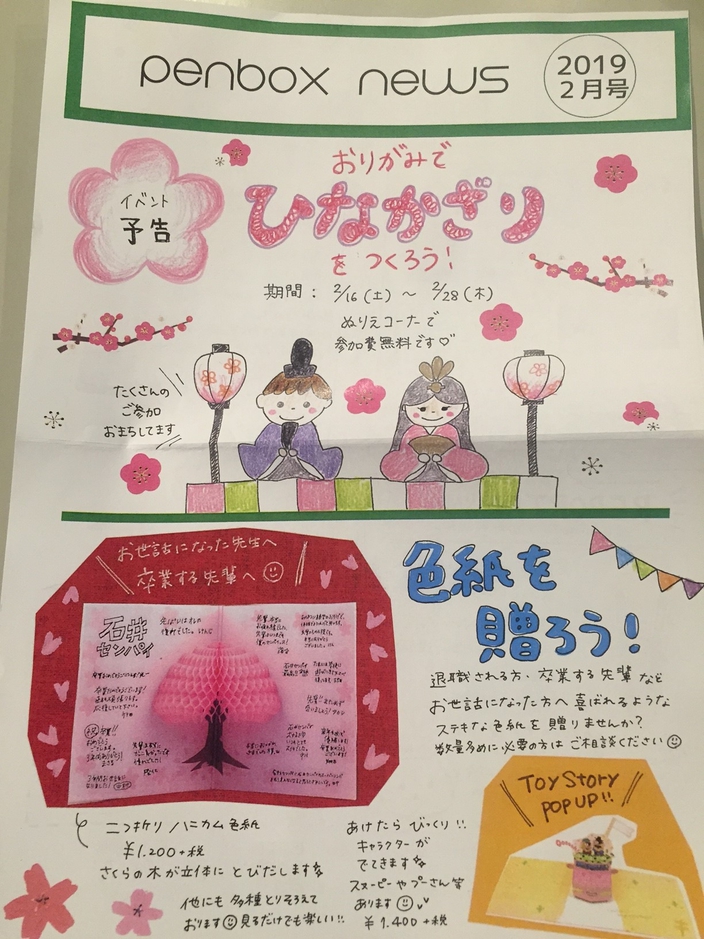 penbox news
2019
2月号
イベント
予告
おりがみで
ひなかざり
をつくろう!
期間: 2/16(土)〜2/28(木)
ぬりえコーナーで
参加費無料です♡
たくさんの
ご参加
おまちしてます
お世話になった先生へ
卒業する先輩へ☺
石井
センパイ
色紙を
贈ろう!
退職される方、卒業する先輩など
お世話になった方へ喜ばれるような
ステキな色紙を贈りませんか?
数量多めに必要の方はご相談ください☺
二つ折りハニカム色紙
¥1.200+税
さくらの木が立体にとびだします
他にも多種とりそろえて
おります☺見るだけでも楽しい!!
あけたらびっくり!!
キャラクターが
でてきます
スヌーピーやプーさん等
あります☺
¥1.400+税
Toy Story
POP UP!!